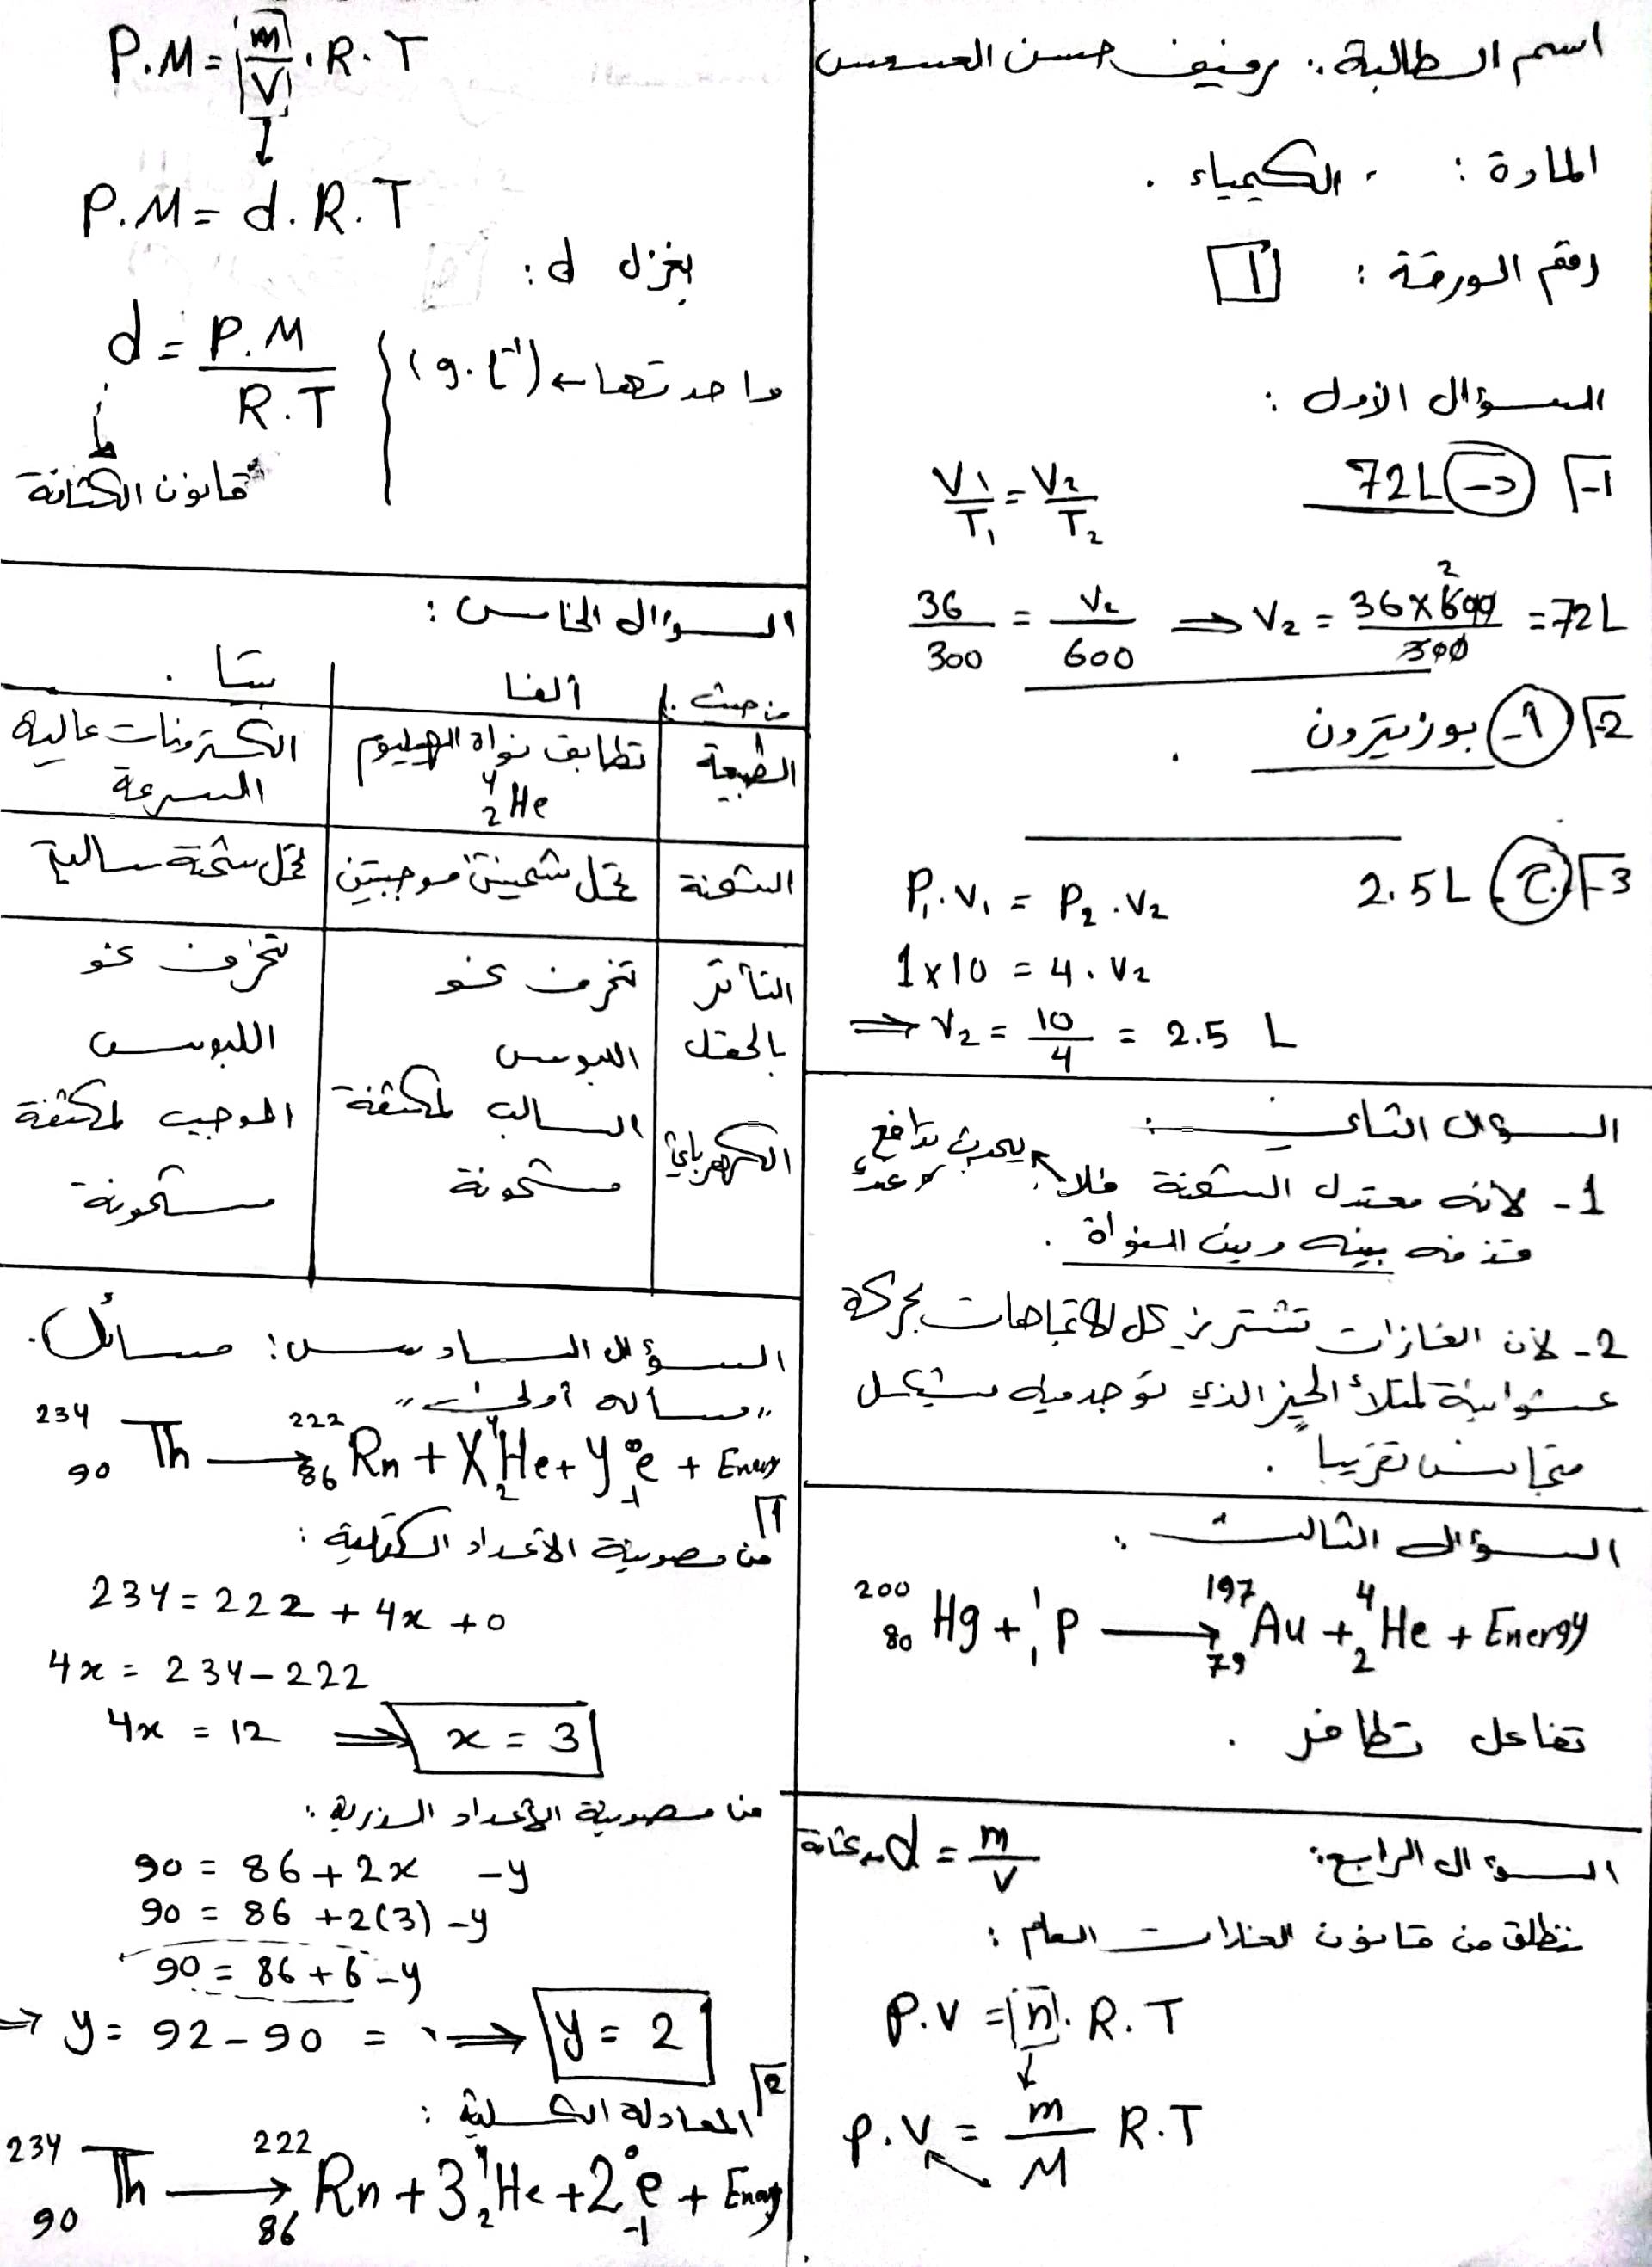 اسم الطالبة:
المادة: الكيمياء.
رقم الورقة: 1
السؤال الأول:
1- د- 72L
V1/T1 = V2/T2
36/300 = V2/600 ⇒ V2 = 36×600/300 = 72L
2- أ- بوزيترون.
3- c. 2.5L
P1.V1 = P2.V2
1×10 = 4.V2
⇒ V2 = 10/4 = 2.5 L
السؤال الثاني:
1- لانه معتدل الشحنة فلا يحدث تدافع عند
قذفه بينه وبين النواة.
2- لأن الغازات تنتشر في كل الاتجاهات بحركة
عشوائية لتملأ الحيز الذي توجد فيه بشكل
متجانس تقريباً.
السؤال الثالث:
²⁰⁰₈₀Hg + ¹₁P ⟶ ¹⁹⁷₇₉Au + ⁴₂He + Energy
تفاعل تطافر.
السؤال الرابع:
d = m/V
ننطلق من قانون الغازات العام:
P.V = n.R.T
P.V = m/M R.T
P.M = m/V . R.T
P.M = d.R.T
بعزل d:
d = P.M/R.T
واحدتها ← (g.L⁻¹)
قانون الكثافة
السؤال الخامس:
من حيث ألفا بيتا.
الطبيعة تطابق نواة الهيليوم ⁴₂He الكترونات عالية السرعة
الشحنة تحمل شحنتين موجبتين تحمل شحنة سالبة
التأثر بالحقل الكهربائي تنحرف نحو اللبوس السالب لمكثفة مشحونة تنحرف نحو اللبوس الموجب لمكثفة مشحونة
السؤال السادس: مسائل.
"مسألة أولى"
²³⁴₉₀Th ⟶ ²²²₈₆Rn + X⁴₂He + Y⁰₋₁e + Energy
1 من مصونية الأعداد الكتلية:
234 = 222 + 4x + 0
4x = 234 - 222
4x = 12 ⇒ x = 3
من مصونية الأعداد الذرية:
90 = 86 + 2x - y
90 = 86 + 2(3) - y
90 = 86 + 6 - y
⇒ y = 92 - 90 = ⇒ y = 2
2 المعادلة الكلية:
²³⁴₉₀Th ⟶ ²²²₈₆Rn + 3⁴₂He + 2⁰₋₁e + Energy